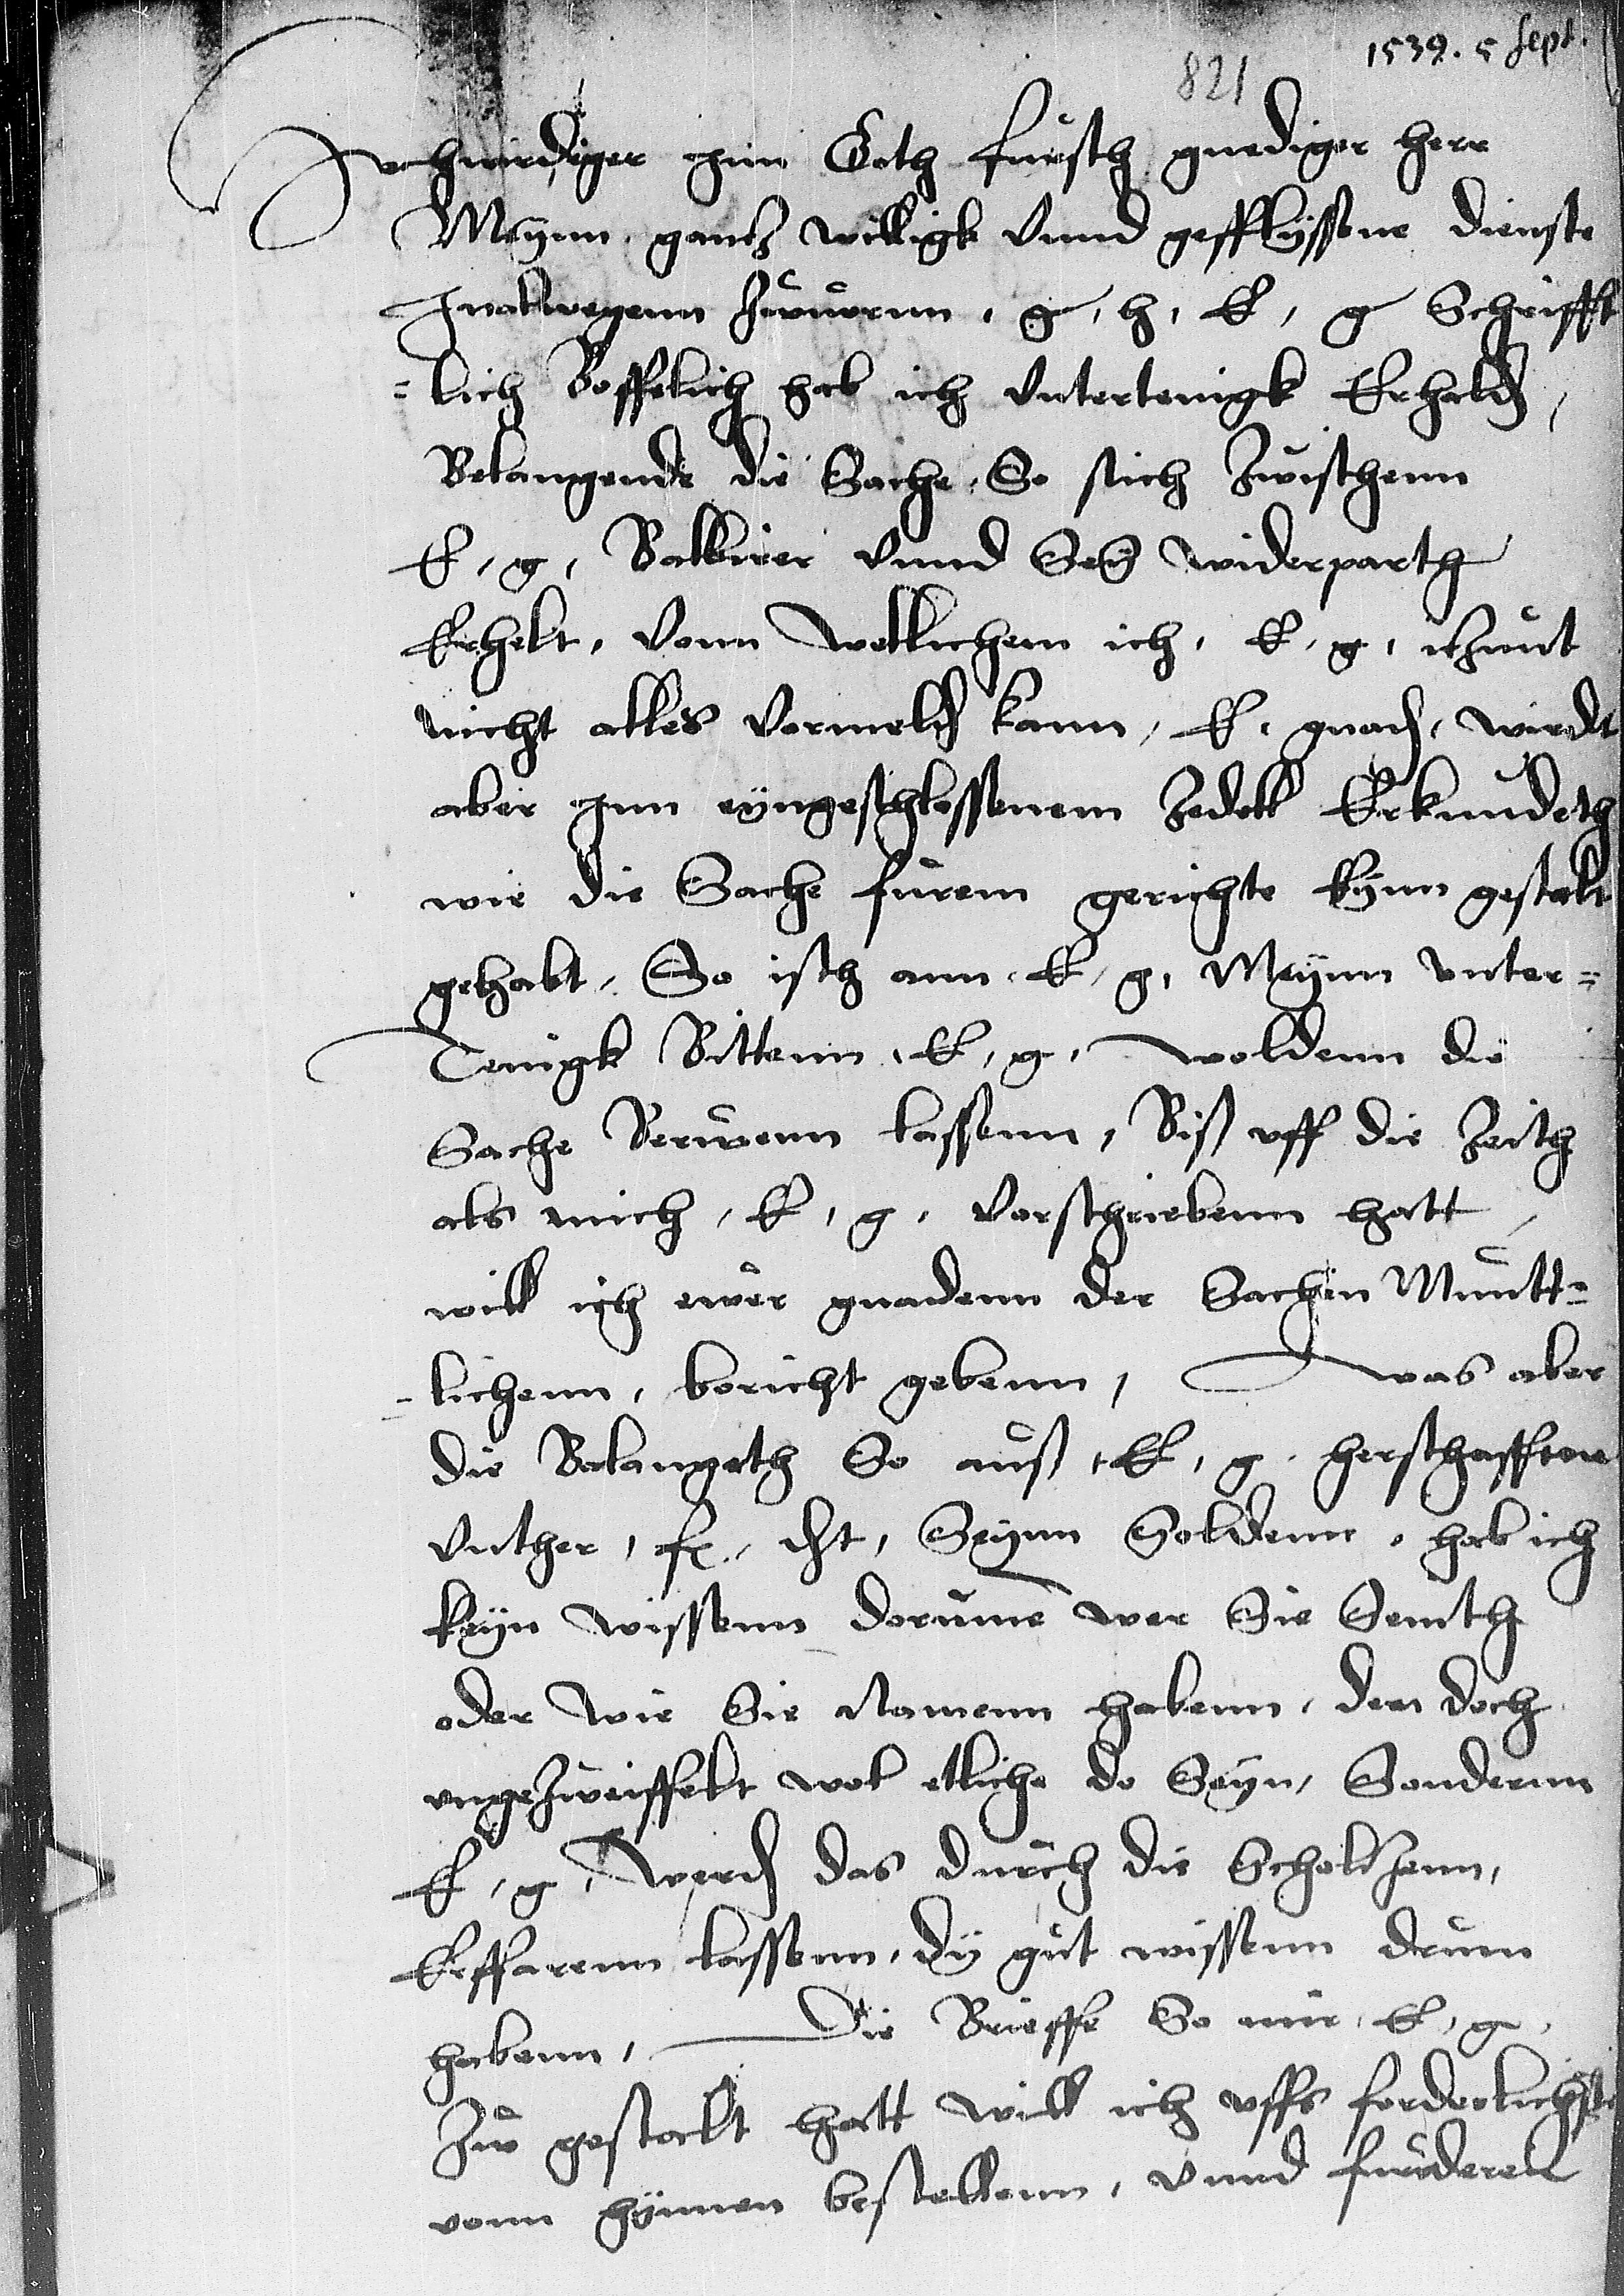 1539. 5 Sept.
821
hwirdiger Inn Goth fursth gnediger herr
Meÿnn gantz willigk vnnd gefflÿssene dienste
Inalwegenn zuuorun, g, h, E, g Schrifft
=lich Beffelich hab ich vntertenigk Erhald,
Belangende die Sache, So sich zwischenn
E, g, Balbirer vnnd Seÿ widerparth
Erhelt, vonn wellichem ich, E, g, itzunt
nicht alles vormeld kann, E, gnad, wirdt
aber Inn eÿngeschlossenem Zedell Erkundeth
wie die Sache furem gerichte Eÿnn gestalt
gehabt, So isth ann, E, g, Meÿnn vnter=
Tenigk Bittenn, E, g, woldenn die
Sache Beruenn lassenn, Biß vff die Zeith
als mich, E, g, vorschriebenn hatt,
will ich ewer gnadenn der Sachen Muntt=
=lichenn, bericht gebenn, was aber
die Belangeth So auß, E, g, herschafften
vnther, f, dht, Seÿnn Soldenn, hab ich
keÿn wissenn dorume wer Sie Seinth
oder wie Sie Namenn habenn, der doch
vngezweiffelt wol etliche do Seÿn, Sonderun
E, g, werd das durch die Scholtzenn,
Erffarenn lassenn, dÿ gut wissenn drum
habenn, Die Brieffe So mir, E, g,
Zw gestalt hatt will ich vffs forderlichste
vonn hÿnnen bestellenn, vnnd furderen